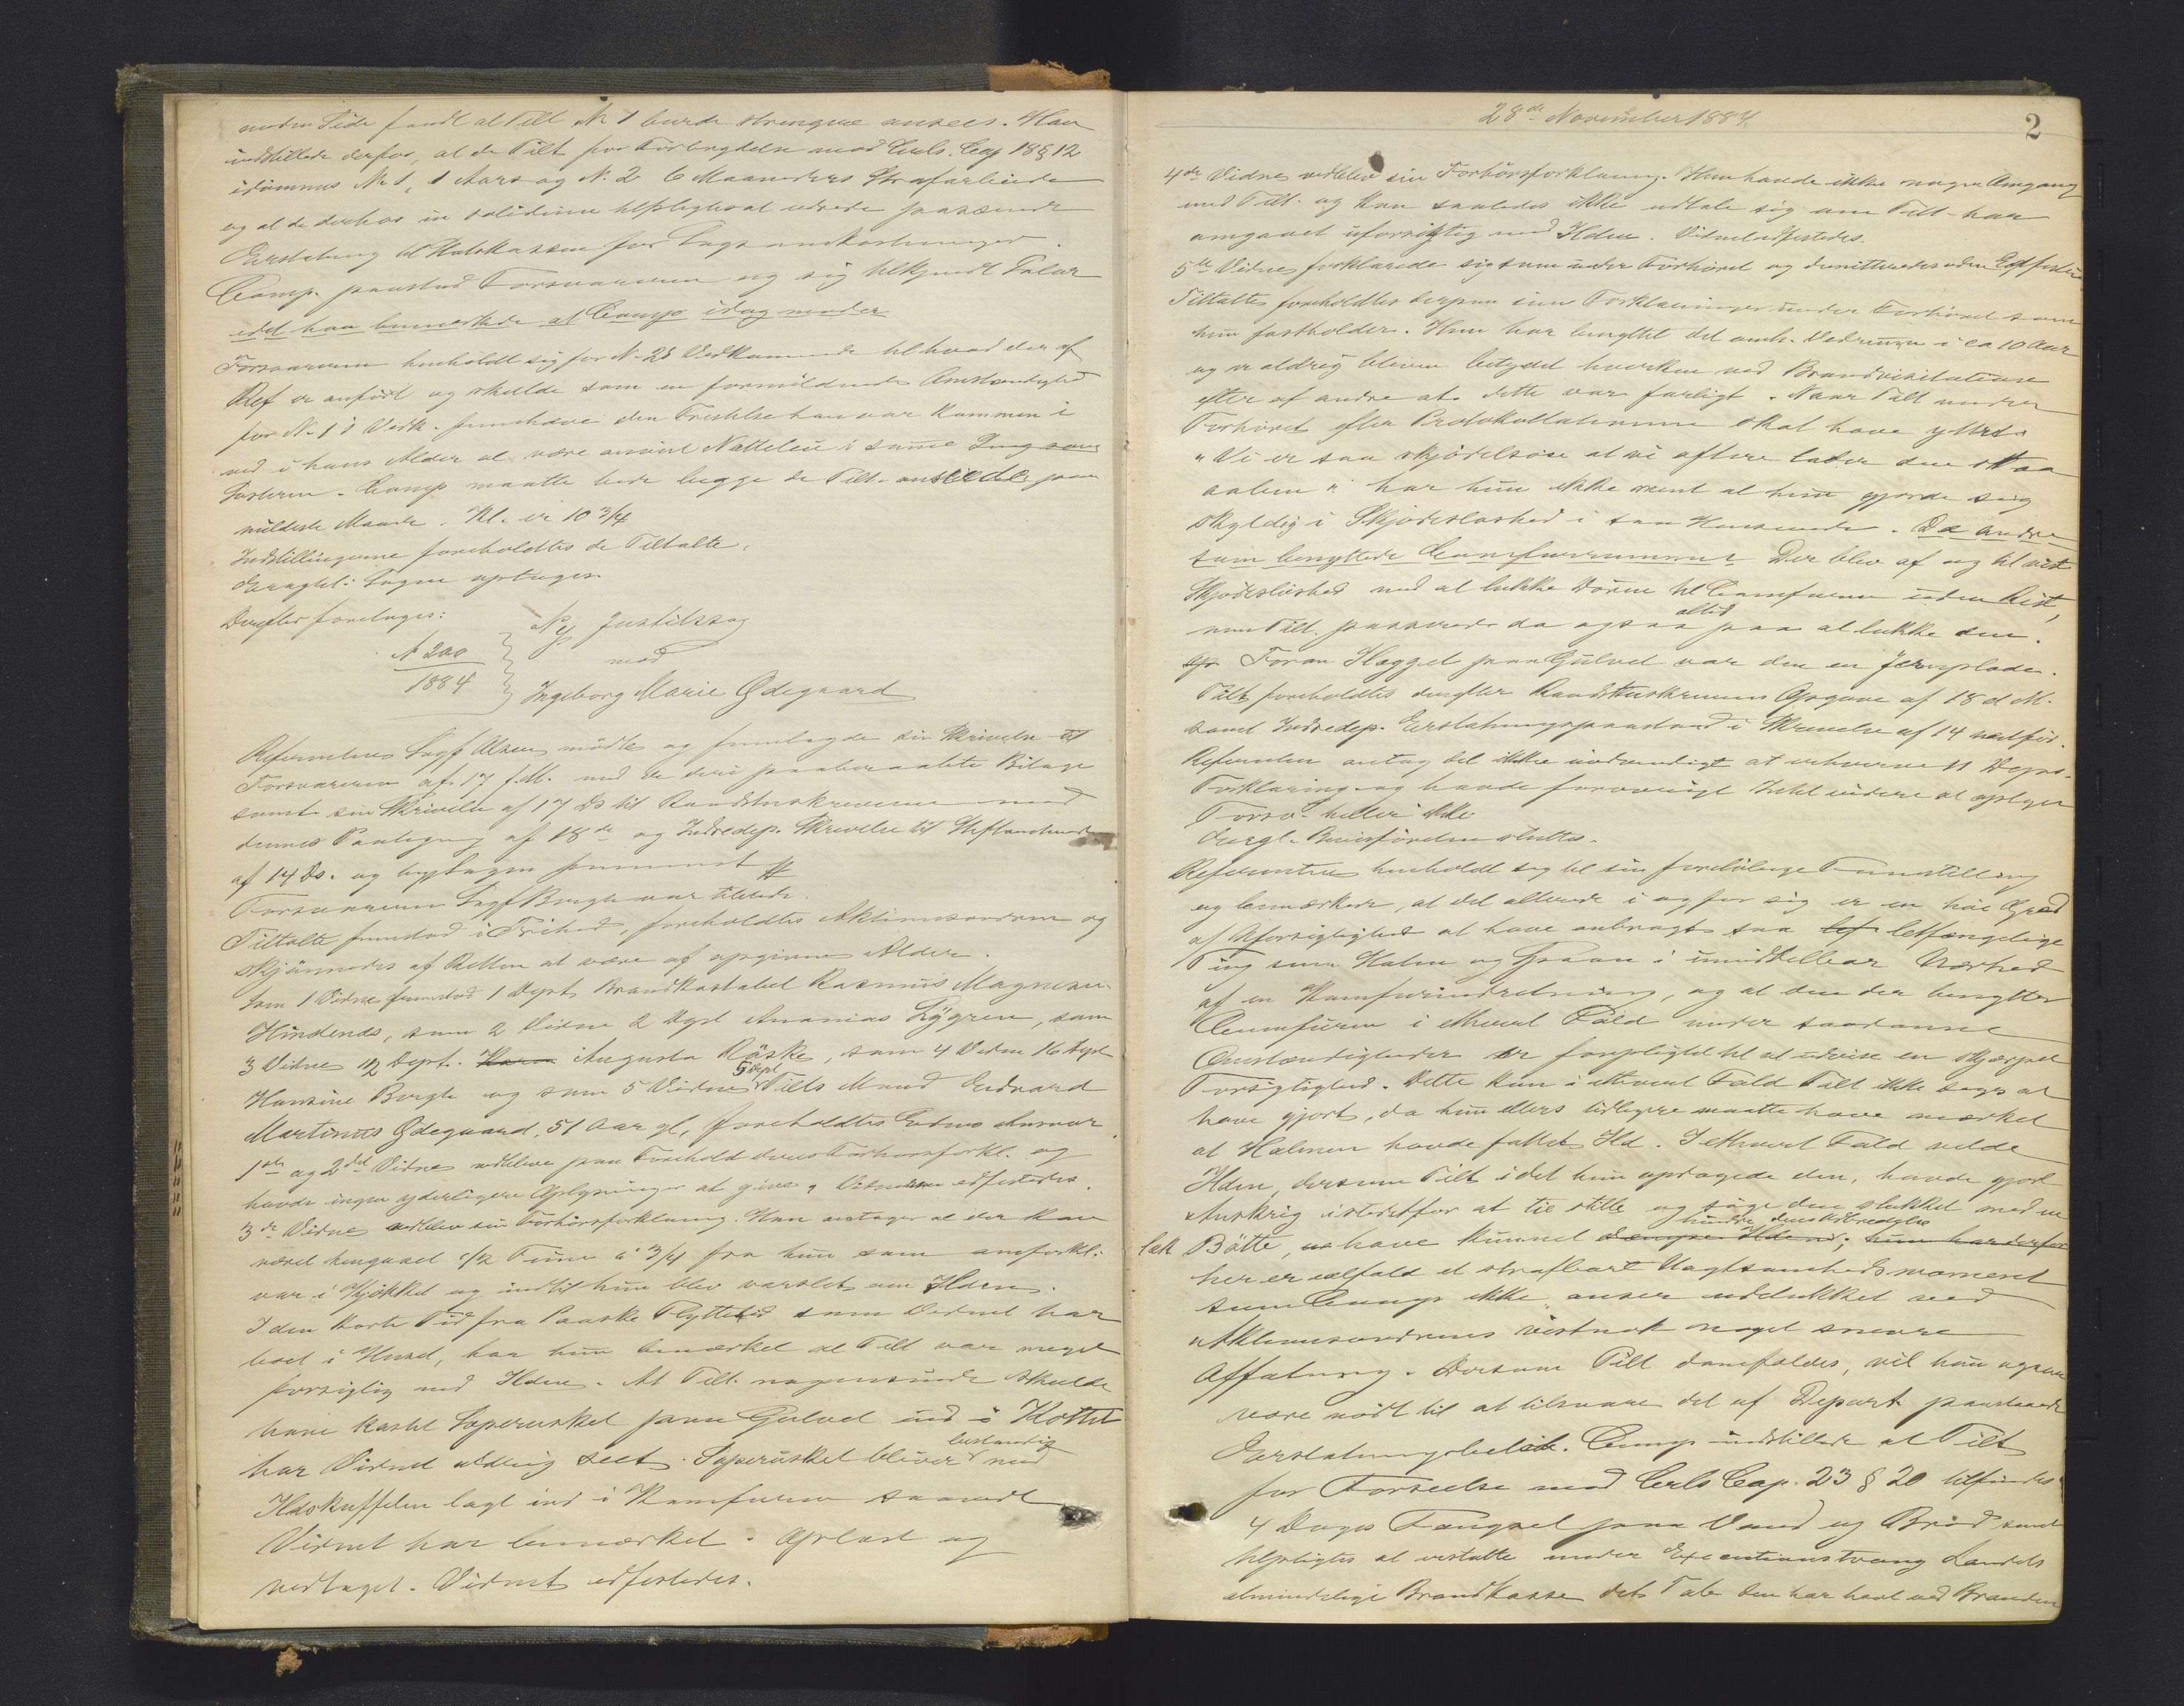 anden Side fandt at Tilt N. 1 burde strengere ansees. Han
indstillede derfor, at de Tilt for Forbrydelse mod Crls. Cap 18 § 12
idømmes No 1, 1 Aars og N. 2 6 Maaneders Strafarbeide
og at de derhos in solidum tilpligtes at udrede passende
Erstatning til Statskassen for Sagsomkostninger.
Comp. paastod Forsvareren og sig tilkjendt Salær
idet han bemærkede at Comp idag møder
Forsvareren henholdt sig for N. 2s Vedkommende til hvad der af
Ref er anført og skulde som en formildende Omstændighed
for N. 1s Vedk. fremhæve den Fristelse han var kommen i
ved i hans Alder at være anvist Natteleie i samme Seng som
Søsteren. Comp maatte bede begge de Tilt. anseede paa
mildeste Maade. Kl. er 10 3/4
Indstillingerne foreholdtes de Tiltalte.
Eragtet: Sagen optages.
Derefter foretages:
N 200
1884
Ny Justitssag
mod
Ingeborg Marie Ødegaard
Referenten Sagf Olsen mødte og fremlagde sin Skrivelse til
Forsvareren af 17 f. M. med de deri paaberaabte Bilage
samt sin Skrivelse af 17 Ds til Raadstuskriveren med
dennes Paategning af 18de og Indredep. Skrivelse til Stiftamtmanden
af 14 Ds. og begjæringen fremmet #
Forsvareren Sagf Bergh var tilstede.
Tiltalte fremstod i Frihed, foreholdtes Aktionsordren og
skjønnedes af Retten at være af opgiven Alder.
Som 1 Vidne fremstod 1 Dept Brandkonstabel Rasmus Magnesen
Hindenæs, som 2 Vidne 2 Dept Ananias Lygren, som
3 Vidne 12 Dept. Karen Augusta Røske, som 4 Vidne 16 Dept
Hansine Bergh og som 5 Vidne 5 Dept Tilts Mand Edvard
Martinus Ødegaard, 51 Aar gl, foreholdtes Edens Ansvar.
1ste og 2det Vidne vedbleve paa Forehold deres Forhørsforkl. og
havde ingen yderligere Oplysninger at give, Vidnerne edfæstedes.
3de Vidne vedblev sin Forhørsforklaring. Hun antager at der kan
været hengaaet 1/2 Time a 3/4 fra hun som omforkl.
var i Kjøkket og indtil hun blev varslet om Ilden.
I den korte Tid fra Paaske Flyttetid som Vidnet har
boet i Huset, har hun bemærket at Tilt var meget
forsigtig med Ilden. At Tilt. nogensinde skulde
have kastet Soperusket paa Gulvet ind i Kottet
har Vidnet aldrig seet. Soperusket bliver bestandig med
Ildskuffelen lagt ind i Kamfuren saavidt
Vidnet har bemærket. Oplæst og
vedtaget. Vidnet edfæstedes.
28de November 1884.
2
4de Vidne vedblev sin Forhørsforklaring. Hun havde ikke nogen Omgang
med Tilt. og kan saaledes ikke udtale sig om Tilt har
omgaaet uforsigtig med Ilden. Vidnet edfæstedes.
5te Vidne forklarede sig som under Forhøret og demitteredes uden Edfæstelse
Tiltaltes foreholdtes derpaa sine Forklaringer under Forhøret som
hun fastholder. Hun har benyttet det omh. Vedrum i ca 10 Aar
og er aldrig bleven betydet hverken ved Brandvisitationen
eller af andre at dette var farligt. Naar Tilt under
Forhøret efter Protokollationen skal have yttret:
"Vi er saa skjødesløse at vi oftere lader den staa
aaben" har hun ikke ment at hun gjorde sig
skyldig i Skjødesløshed i saa Henseende. Da andre
som benyttede Comfurrummet Der blev af og til vist
Skjødesløshed med at lukke Døren til Comfuren inden Rist,
men Tilt. passerede da ogsaa altid paa at lukke den.
Foran Ilægget paa Gulvet var der en Jernplade.
Tilt foreholdtes derefter Raadstuskriverens Opgave af 18 d. M.
samt Indredep. Erstatningspaastand i Skrivelse af 14 nætfør.
Referenten antog det ikke nødvendigt at erhverve 11 Deps.
Forklaring og havde forøvrigt Intet videre at oplyse
Forsv. heller ikke
Eragt. Bevisførelsen sluttes.
Referenten henholdt sig til sin foreløbige Fremstilling
og bemærkede, at det allerede i og for sig er en høi Grad
af Uforsigtighed at have anbragt saa let letfængelige
Ting som Halm og Spaan i umiddelbar Nærhed
af en Kamfurindretning, og at den der benytter
Comfuren i ethvert Fald under saadanne
Omstændigheder er forpligtet til at udvise en skjærpet
Forsigtighed. Dette kan i ethvert Fald Tilt ikke siges at
have gjort, da hun ellers tidligere maatte have mærket
at Halmen havde fattet Ild. I ethvert Fald vilde
Ilden, dersom Tilt idet hun opdagede den, havde gjort
Anskrig istedetfor at tie stille og søge den slukket med en
læk Bøtte, have kunnet hindre dens Udbredelse dæmpe Ilden; hun har derfor
her er ialfald et strafbart Uagtsomhedsmoment
som Comp ikke anser udelukket ved
Aktionsordrens vistnok noget snevre
Affatning. Dersom Tilt domfældes, vil hun ogsaa
være nødt til at tilsvare det af Depart. paastaaede
Erstatningsbeløb. Comp indstillede at Tilt
for Forseelse mod Crls Cap. 23 § 20 tilfindes
4 Dages Fængsel paa Vand og Brød samt
tilpligtes at erstatte under Executionstvang Landets
almindelige Brandkasse det Tab den har havt ved Branden